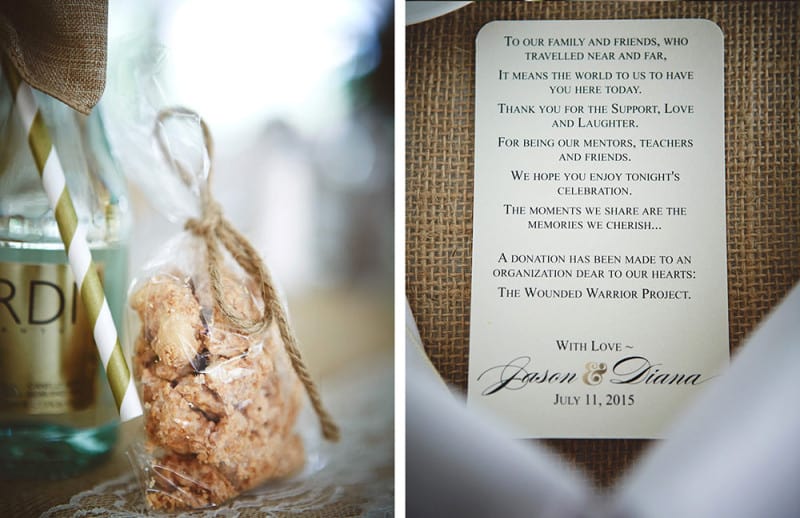 RDI
TO OUR FAMILY AND FRIENDS, WHO
TRAVELLED NEAR AND FAR,
IT MEANS THE WORLD TO US TO HAVE
YOU HERE TODAY.
THANK YOU FOR THE SUPPORT, LOVE
AND LAUGHTER.
FOR BEING OUR MENTORS, TEACHERS
AND FRIENDS.
WE HOPE YOU ENJOY TONIGHT'S
CELEBRATION.
THE MOMENTS WE SHARE ARE THE
MEMORIES WE CHERISH...
A DONATION HAS BEEN MADE TO AN
ORGANIZATION DEAR TO OUR HEARTS:
THE WOUNDED WARRIOR PROJECT.
WITH LOVE ~
Jason & Diana
JULY 11, 2015